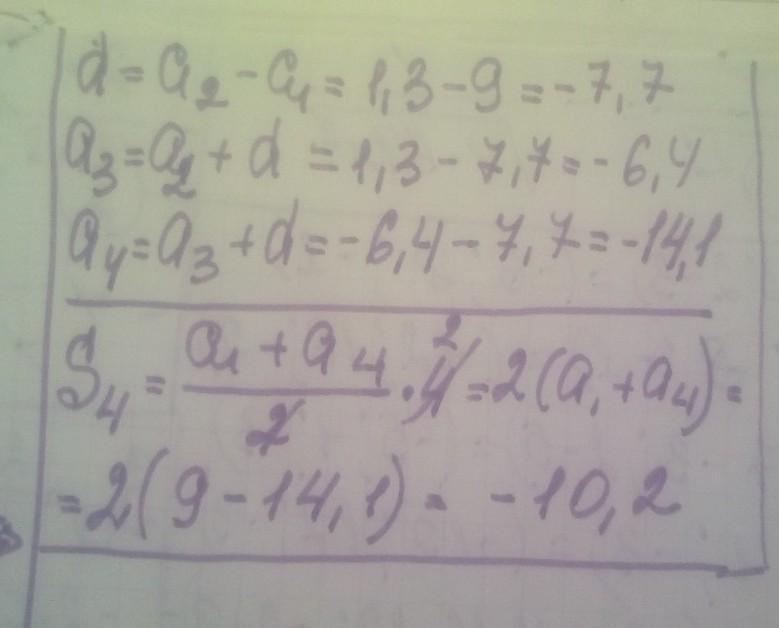 d = a₂ - a₁ = 1,3 - 9 = -7,7
a₃ = a₂ + d = 1,3 - 7,7 = -6,4
a₄ = a₃ + d = -6,4 - 7,7 = -14,1
S₄ = (a₁ + a₄)/2 · 4 2 = 2(a₁ + a₄) =
= 2(9 - 14,1) = -10,2